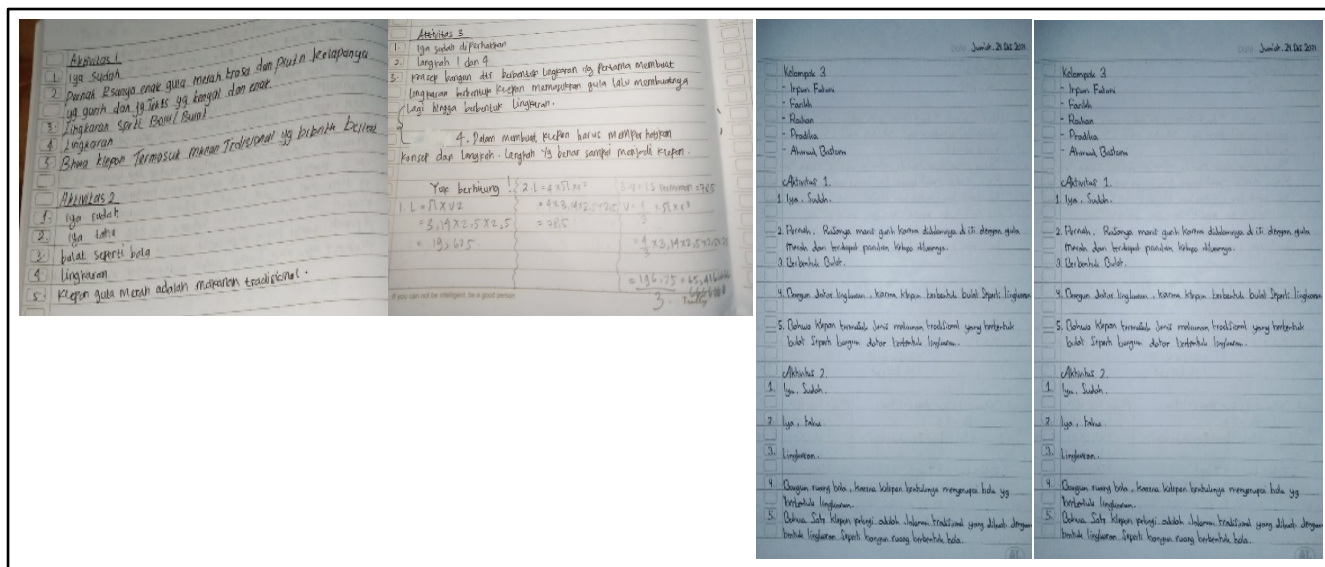 Aktivitas 1
1. Iya Sudah
2. Pernah Rsanya enak gula merah krasa dan parutn kelapanya
yg gurih dan yg Teksts yg kenyal dan enak.
3. Lingkaran Sprti Bola / Bulat
4. Lingkaran
5. Bhwa klepon Termasuk mknan Tradisional yg brbntk
Aktivitas 2
1. Iya sudah
2. Iya tahu
3. bulat seperti bola
4. Lingkaran
5. klepon gula merah adalah makanan tradisional.
Aktivitas 3
1. Iya sudah diperhatikan
2. langkah 1 dan 4
3. Konsep bangun dtr berbentuk Lingkaran yg Pertama membuat
Lingkaran berbentuk klepon memasukkan gula lalu membuatnya
Lagi hingga berbentuk Lingkaran.
4. Dalam membuat klepon harus memperhatikan
Konsep dan Langkah-Langkah yg benar sampai menjadi klepon.
Yok berhitung!
1. L = π x r2
= 3,14 x 2,5 x 2,5
= 19,625
2. L = 4 x π x r²
= 4 x 3,14 x 2,5 x 2,5
= 78,5
= 4/3 x 3,14 x 2,5 x 2,5 x 2,5
3
If you can not be intelligent, be a good person
Jum'at, 24 Des 2021
Kelompok 3
- Irpan Fahmi
- Farikh
- Raihan
- Pradika
- Ahmad Bastomi
Aktivitas 1.
1. Iya, Sudah.
2. Pernah, Rasanya manis gurih karna didalamnya di isi dengan gula
merah dan terdapat parutan kelapa diluarnya.
3. Berbentuk Bulat.
4. Bangun datar lingkaran, karna klepon berbentuk bulat Seperti lingkaran
5. Bahwa klepon termasuk Jenis makanan tradisional yang berbentuk
bulat Seperti bangun datar berbentuk lingkaran.
Aktivitas 2.
1. Iya, Sudah.
2. Iya, tahu
3. Lingkaran.
4. Bangun ruang bola, karena kelepon bentuknya menyerupai bola yg
berbentuk lingkaran.
5. Bahwa Satu klepon pelangi adalah Jajanan tradisional yang dibuat dengan
bentuk lingkaran Seperti bangun ruang berbentuk bola.
Jum'at, 24 Des 2021
Kelompok 3
- Irpan Fahmi
- Farikh
- Raihan
- Pradika
- Ahmad Bastomi
Aktivitas 1.
1. Iya, Sudah.
2. Pernah, Rasanya manis gurih karna didalamnya di isi dengan gula
merah dan terdapat parutan kelapa diluarnya.
3. Berbentuk Bulat.
4. Bangun datar lingkaran, karna klepon berbentuk bulat Seperti lingkaran
5. Bahwa klepon termasuk Jenis makanan tradisional yang berbentuk
bulat Seperti bangun datar berbentuk lingkaran.
Aktivitas 2.
1. Iya, Sudah.
2. Iya, tahu
3. Lingkaran.
4. Bangun ruang bola, karena kelepon bentuknya menyerupai bola yg
berbentuk lingkaran.
5. Bahwa Satu klepon pelangi adalah Jajanan tradisional yang dibuat dengan
bentuk lingkaran Seperti bangun ruang berbentuk bola.